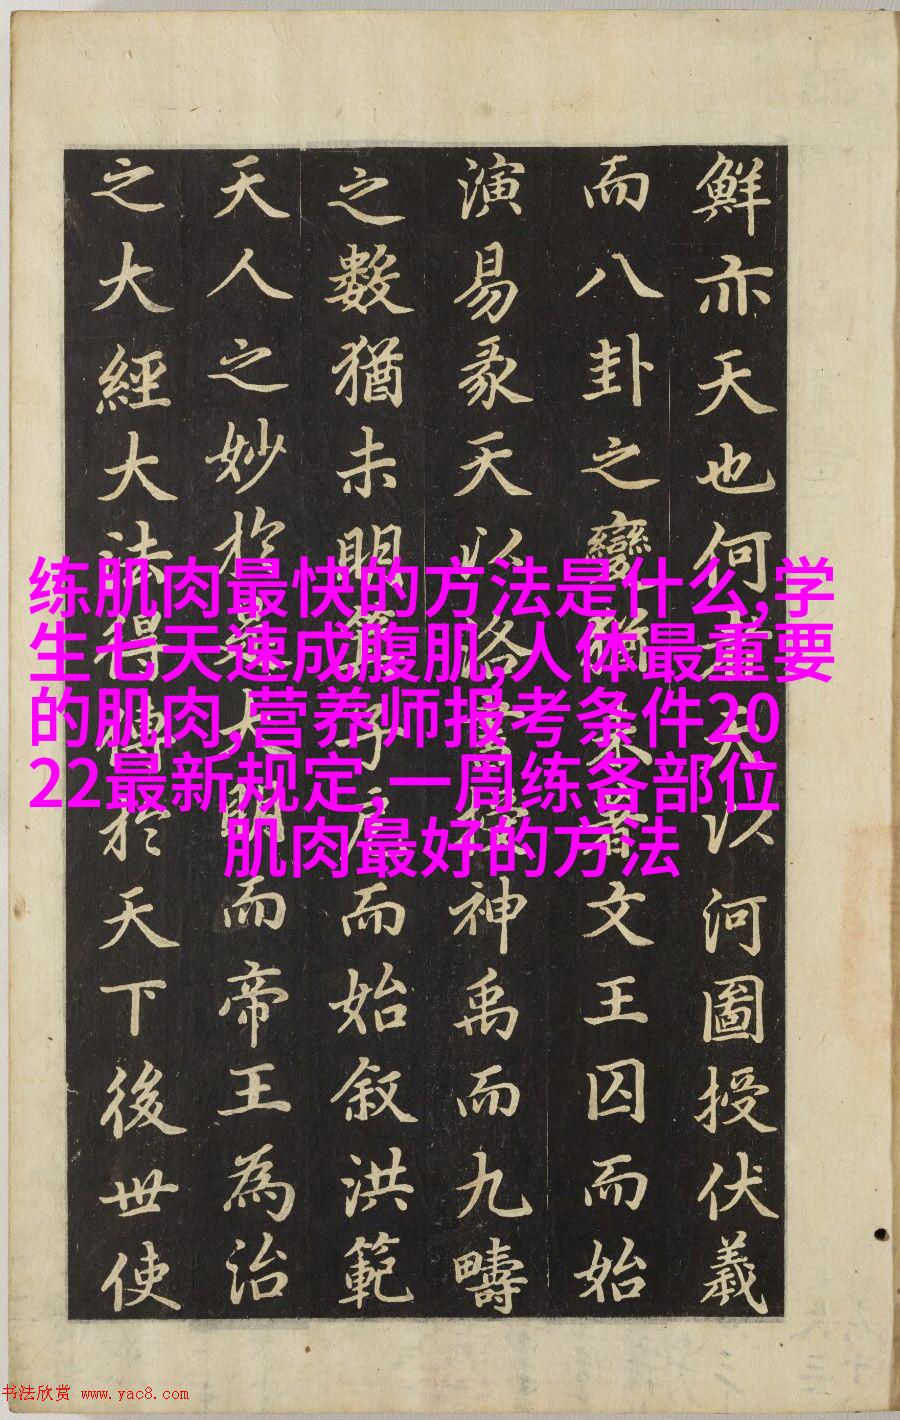 鮮亦天也何者天以河圖授伏羲
而八卦之變未著文王囚而始
演易彖天以洛書授神禹而九疇
之數猶未明箕子而始叙洪範
天人之妙於是大明而帝王為治
之大經大法得傳於天下後世使
练肌肉最快的方法是什么,学
生七天速成腹肌,人体最重要
的肌肉,营养师报考条件20
22最新规定,一周练各部位
肌肉最好的方法
书法欣赏 www.yac8.com